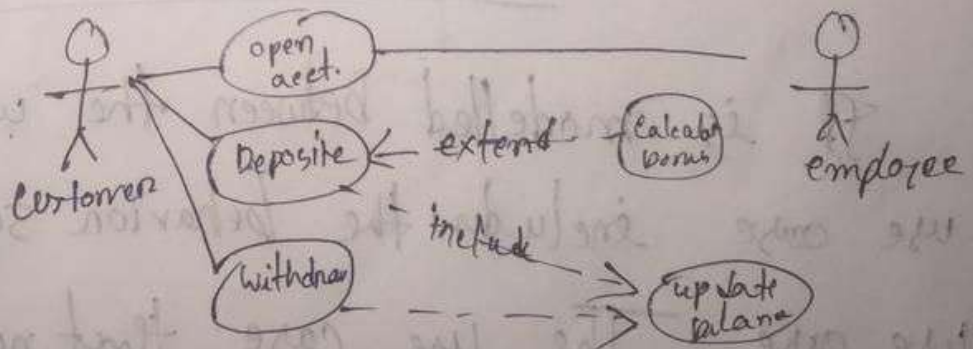 open
acct.
Deposite
extend
Calculate
bonus
Customer
employee
include
withdraw
update
balance